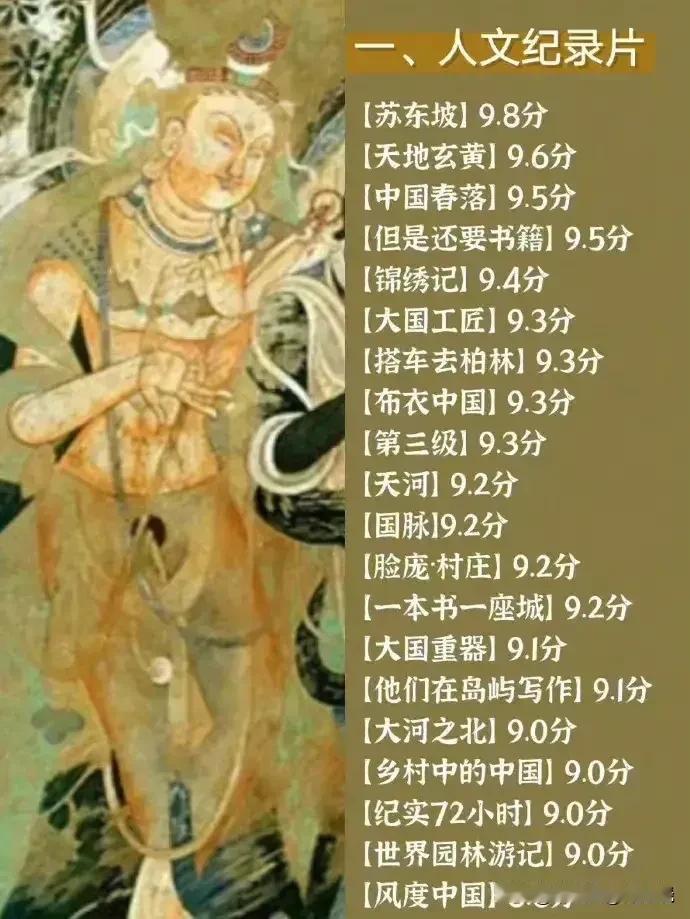 一、人文纪录片
【苏东坡】9.8分
【天地玄黄】9.6分
【中国春落】9.5分
【但是还要书籍】9.5分
【锦绣记】9.4分
【大国工匠】9.3分
【搭车去柏林】9.3分
【布衣中国】9.3分
【第三级】9.3分
【天河】9.2分
【国脉】9.2分
【脸庞·村庄】9.2分
【一本书一座城】9.2分
【大国重器】9.1分
【他们在岛屿写作】9.1分
【大河之北】9.0分
【乡村中的中国】9.0分
【纪实72小时】9.0分
【世界园林游记】9.0分
【风度中国】